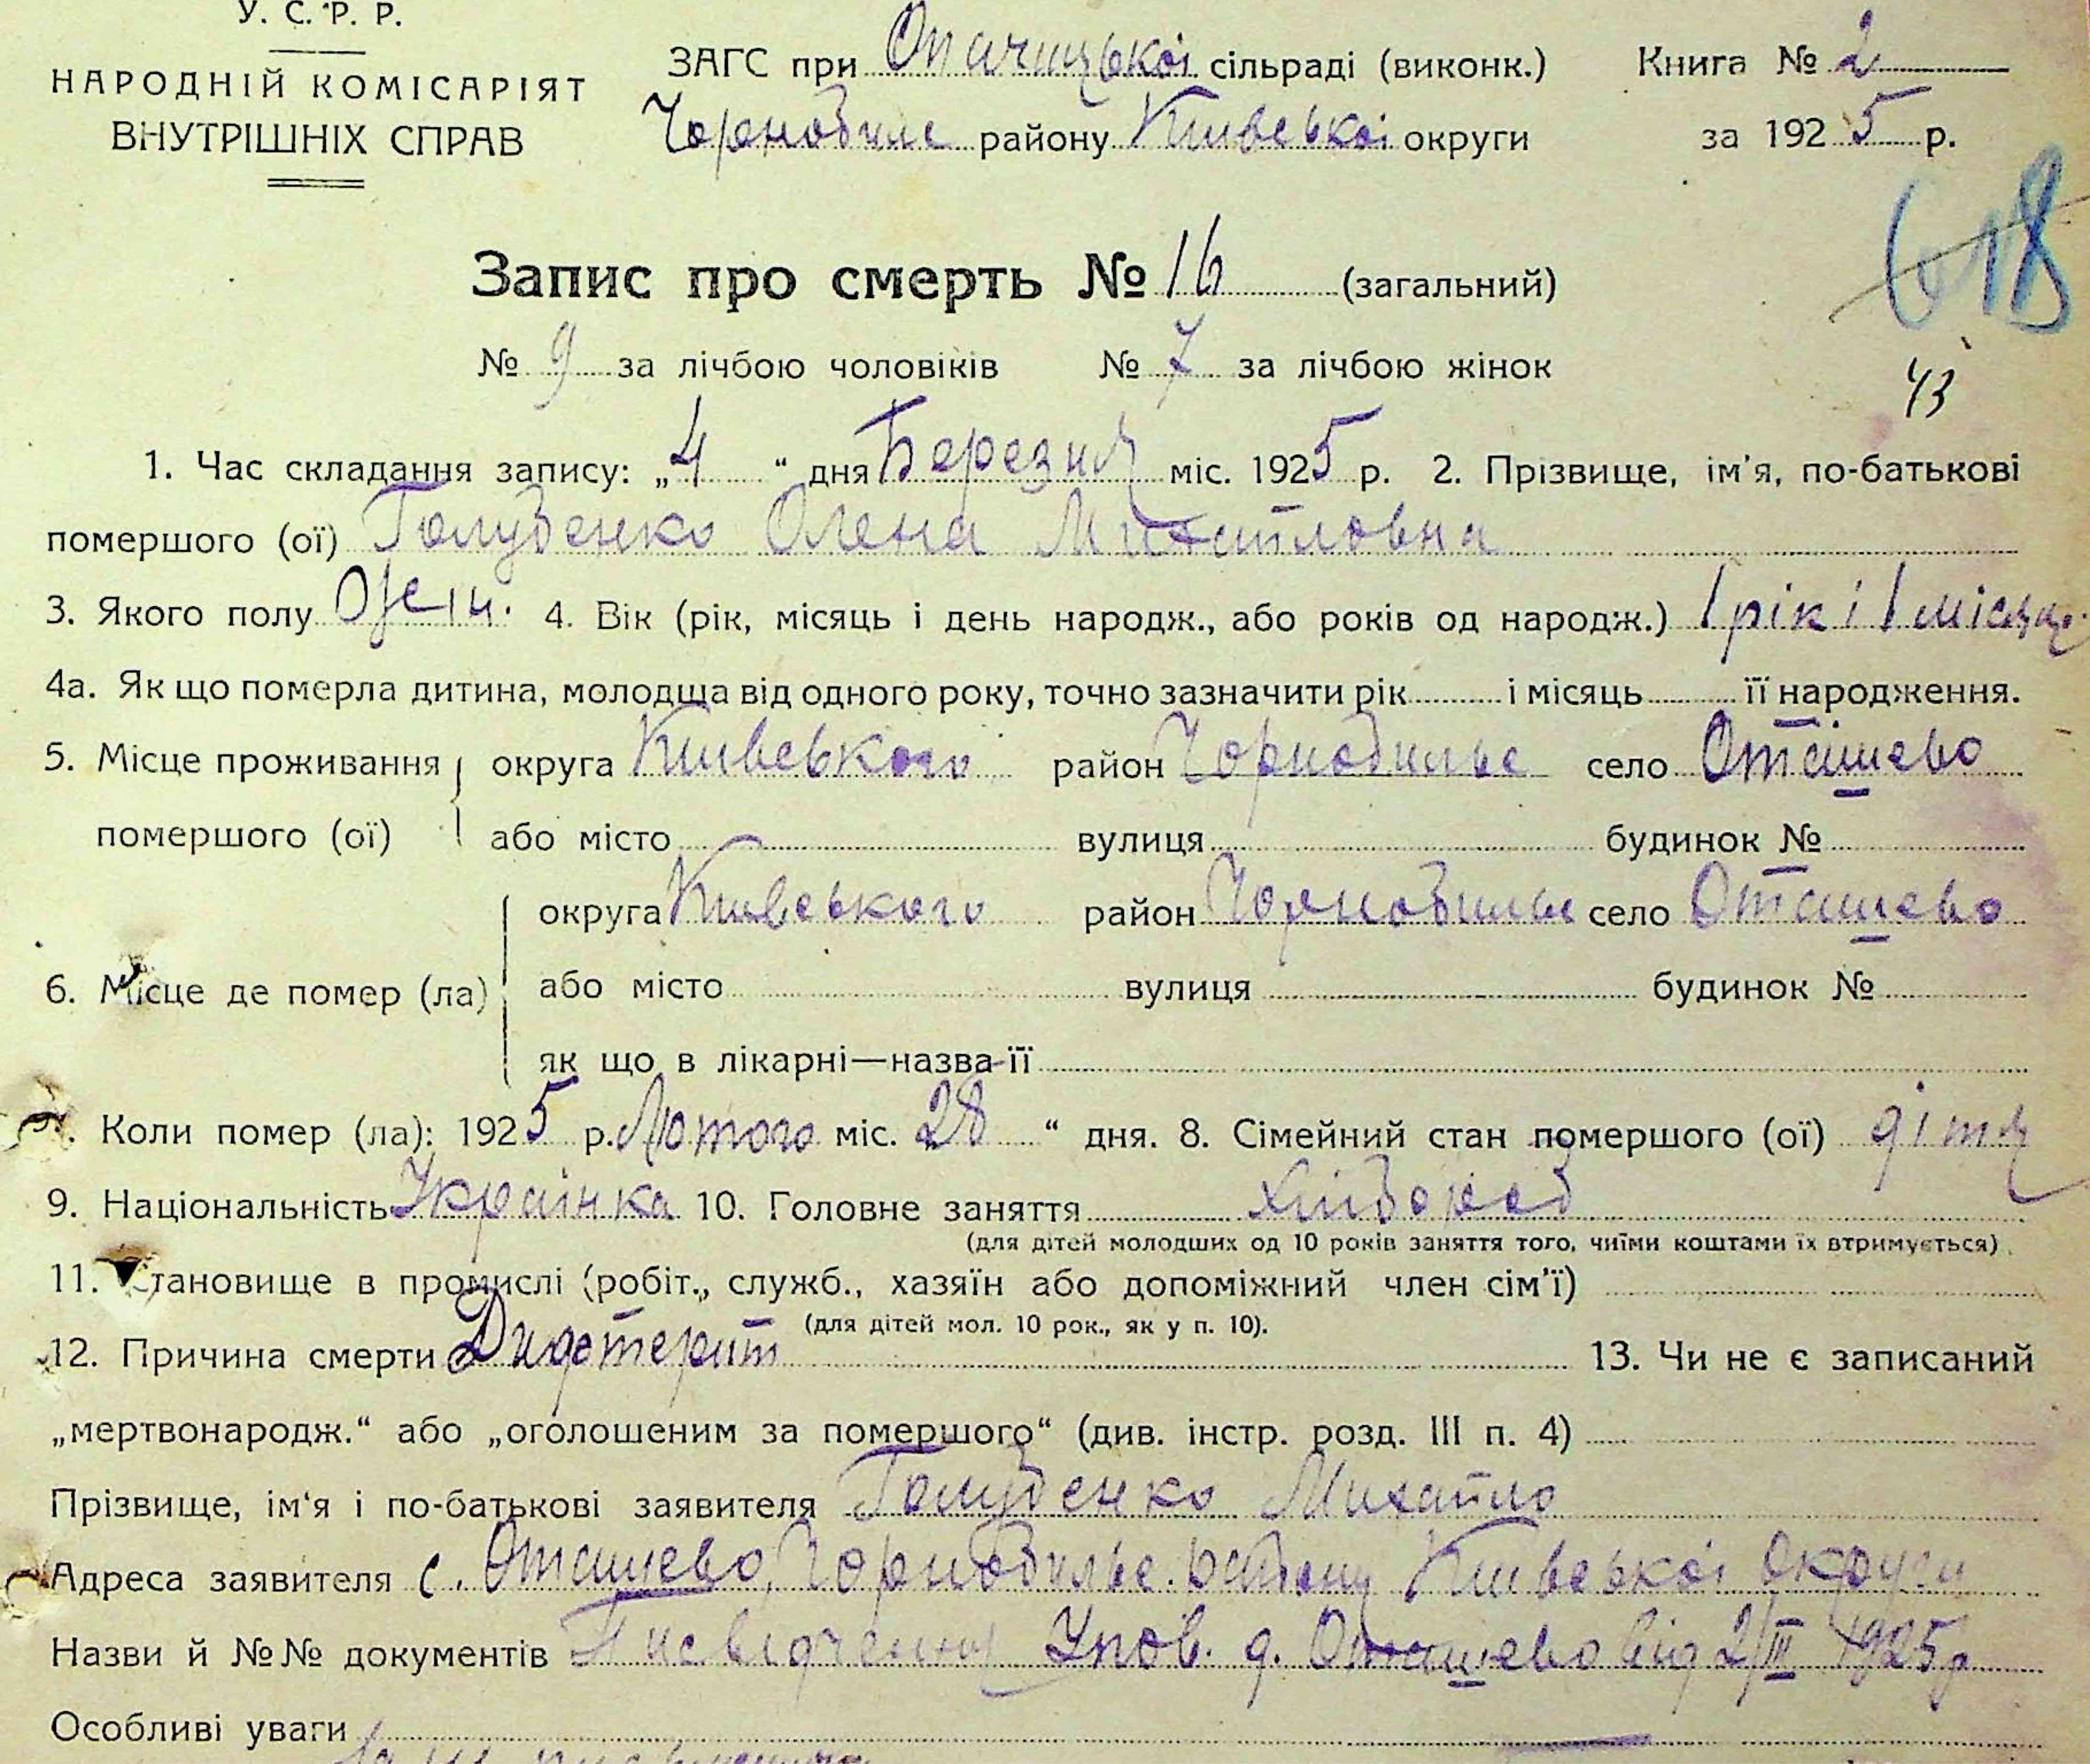 У. С. Р. Р.
НАРОДНІЙ КОМІСАРІЯТ
ВНУТРІШНІХ СПРАВ
ЗАГС при Опачицької сільраді (виконк.)
Чорнобильс району Київської округи
Книга № 2
за 1925 р.
618
Запис про смерть № 16 (загальний)
№ 9 за лічбою чоловіків № 7 за лічбою жінок
43
1. Час складання запису: „4 “ дня Березня міс. 1925 р. 2. Прізвище, ім'я, по-батькові
помершого (ої) Голубенко Олена Михайловна
3. Якого полу Жін. 4. Вік (рік, місяць і день народж., або років од народж.) 1 рік і 1 місяць
4а. Як що померла дитина, молодща від одного року, точно зазначити рік і місяць її народження.
5. Місце проживання округа Київського район Чорнобильс село Оташево
помершого (ої) або місто вулиця будинок №
округа Київського район Чорнобильс село Оташево
6. Місце де помер (ла) або місто вулиця будинок №
як що в лікарні—назва її
7. Коли помер (ла): 1925 р. Лютого міс. 28 “ дня. 8. Сімейний стан помершого (ої) дітя
9. Національність Українка 10. Головне заняття хлібороб
(для дітей молодших од 10 років заняття того, чиїми коштами їх втримується)
11. Становище в промислі (робіт., служб., хазяїн або допоміжний член сім'ї)
(для дітей мол. 10 рок., як у п. 10).
12. Причина смерти Дифтерит 13. Чи не є записаний
„мертвонародж.“ або „оголошеним за помершого“ (див. інстр. розд. III п. 4)
Прізвище, ім'я і по-батькові заявителя Голубенко Михайло
Адреса заявителя с. Оташево, Чорнобильс. району Київської округи
Назви й №№ документів Посвідчення Упов. д. Оташево від 2/III 1925 р
Особливі уваги